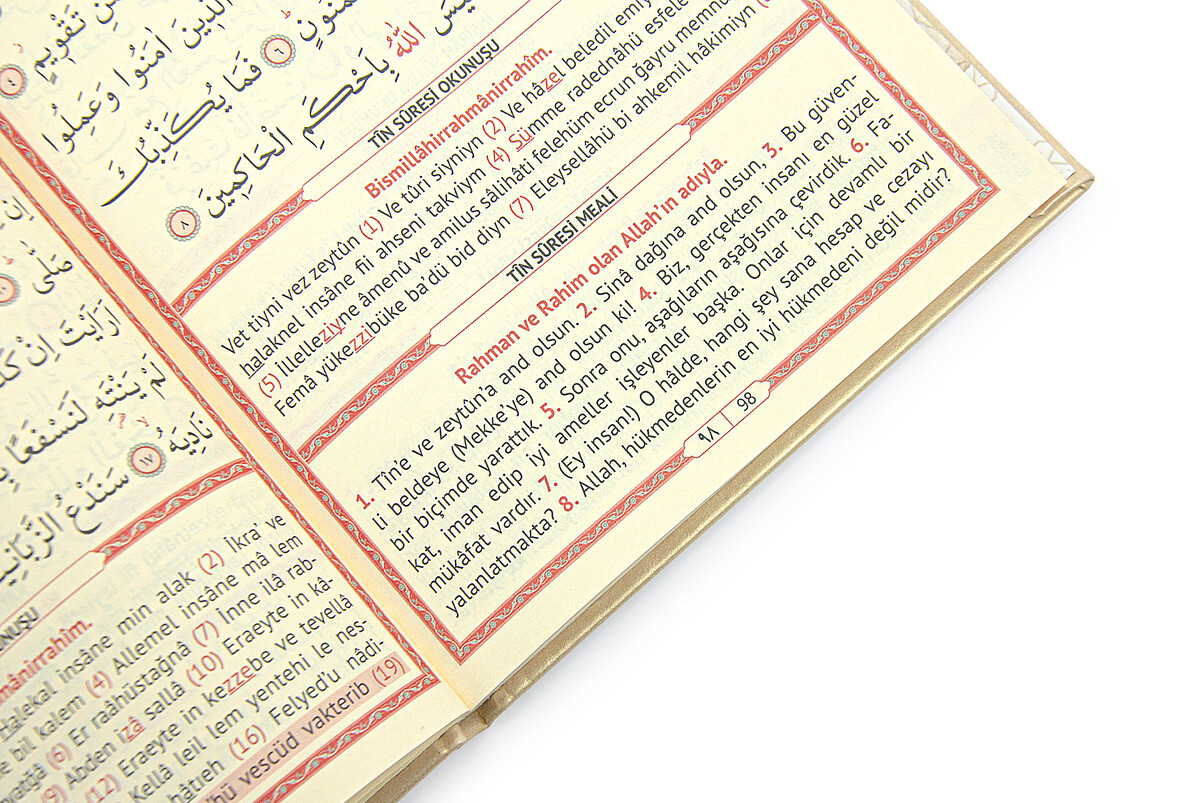 تَقْوِيمٍ ٤
الَّذِينَ اٰمَنُوا وَعَمِلُوا
مَمْنُونٍ ٦ فَمَا يُكَذِّبُكَ
اللّٰهُ بِاَحْكَمِ الْحَاكِمِينَ ٨
TÎN SÛRESİ OKUNUŞU
Bismillâhirrahmânirrahîm.
Vet tiyni vez zeytûn (1) Ve tûri siyniyn (2) Ve hâzel beledil
halaknel insâne fii ahseni takviym (4) Sümme radednâhü
(5) Illelleziyne âmenû ve amilus sâlihâti felehüm ecrun ğayru
Femâ yükezzibüke ba'dü bid diyn (7) Eleysellâhü bi ahkemil hâkimiyn
TÎN SÛRESİ MEALİ
Rahman ve Rahim olan Allah'ın adıyla.
1. Tîn'e ve zeytûn'a and olsun. 2. Sinâ dağına and olsun, 3. Bu güven-
li beldeye (Mekke'ye) and olsun ki! 4. Biz, gerçekten insanı en güzel
bir biçimde yarattık. 5. Sonra onu, aşağıların aşağısına çevirdik. 6. Fa-
kat, iman edip iyi ameller işleyenler başka. Onlar için devamlı bir
mükâfat vardır. 7. (Ey insan!) O hâlde, hangi şey sana hesap ve cezayı
yalanlatmakta? 8. Allah, hükmedenlerin en iyi hükmedeni değil midir?
٩٨ 98
صَلّٰى
اَرَاَيْتَ اِنْ
لَمْ يَنْتَهِ لَنَسْفَعًا
نَادِيَهُ ١٧ سَنَدْعُ
insâne min alak (2) İkra' ve
bil kalem (4) Allemel insâne mâ lem
(6) Er raâhüstağnâ (7) İnne ilâ rab-
(9) Abden izâ sallâ (10) Eraeyte in kâ-
(12) Eraeyte in kezzebe ve tevellâ
Kellâ leil lem yentehi le nes-
(16) Felyed'u nâdi-
vescüd vakterib (19)